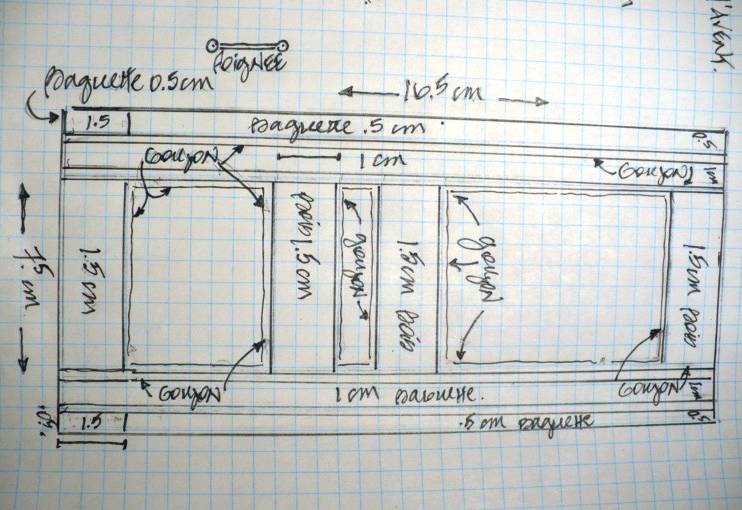 L'AVENT.
POIGNEE
Baguette 0.5 cm
16.5 cm
1.5
Baguette .5 cm
0.5
Goujon
1 cm
Goujon
1cm
7.5 cm
1.5 cm
Bois 1.5 cm
goujon
1.5 cm Bois
goujon
1.5cm Bois
Goujon
1 cm Baguette.
Goujon
1cm
0.5
1.5
.5 cm Baguette
0.5